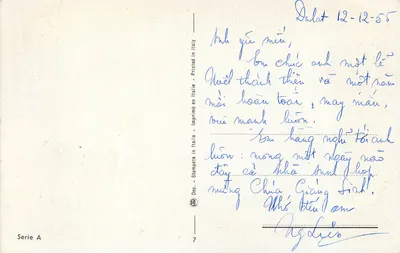 Dalat 12-12-55
Anh yêu mến,
Em chúc anh một lễ
Noël thánh thiện và một năm
mới hoàn toàn, may mắn,
vui mạnh luôn.
Em hằng nghĩ tới anh
luôn: mong một ngày nào
đây cả nhà sum họp
mừng Chúa Giáng Sinh!
Nhớ đến em
Ng
Dec. - Stampata in Italia - Imprimé en Italie - Printed in Italy
Serie A
7